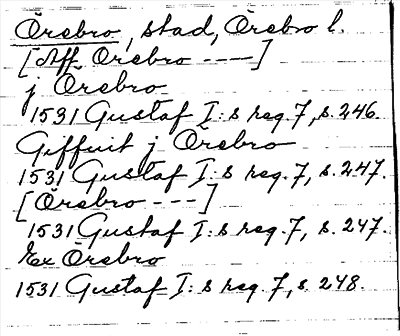 Örebro, stad, Örebro l.
[Aff Örebro ----]
j Örebro
1531 Gustaf I:s reg. 7, s. 246.
Giffuit j Örebro
1531 Gustaf I:s reg. 7, s. 247.
[Örebro ---]
1531 Gustaf I:s reg. 7, s. 247.
Ex Örebro
1531 Gustaf I:s reg. 7, s. 248.